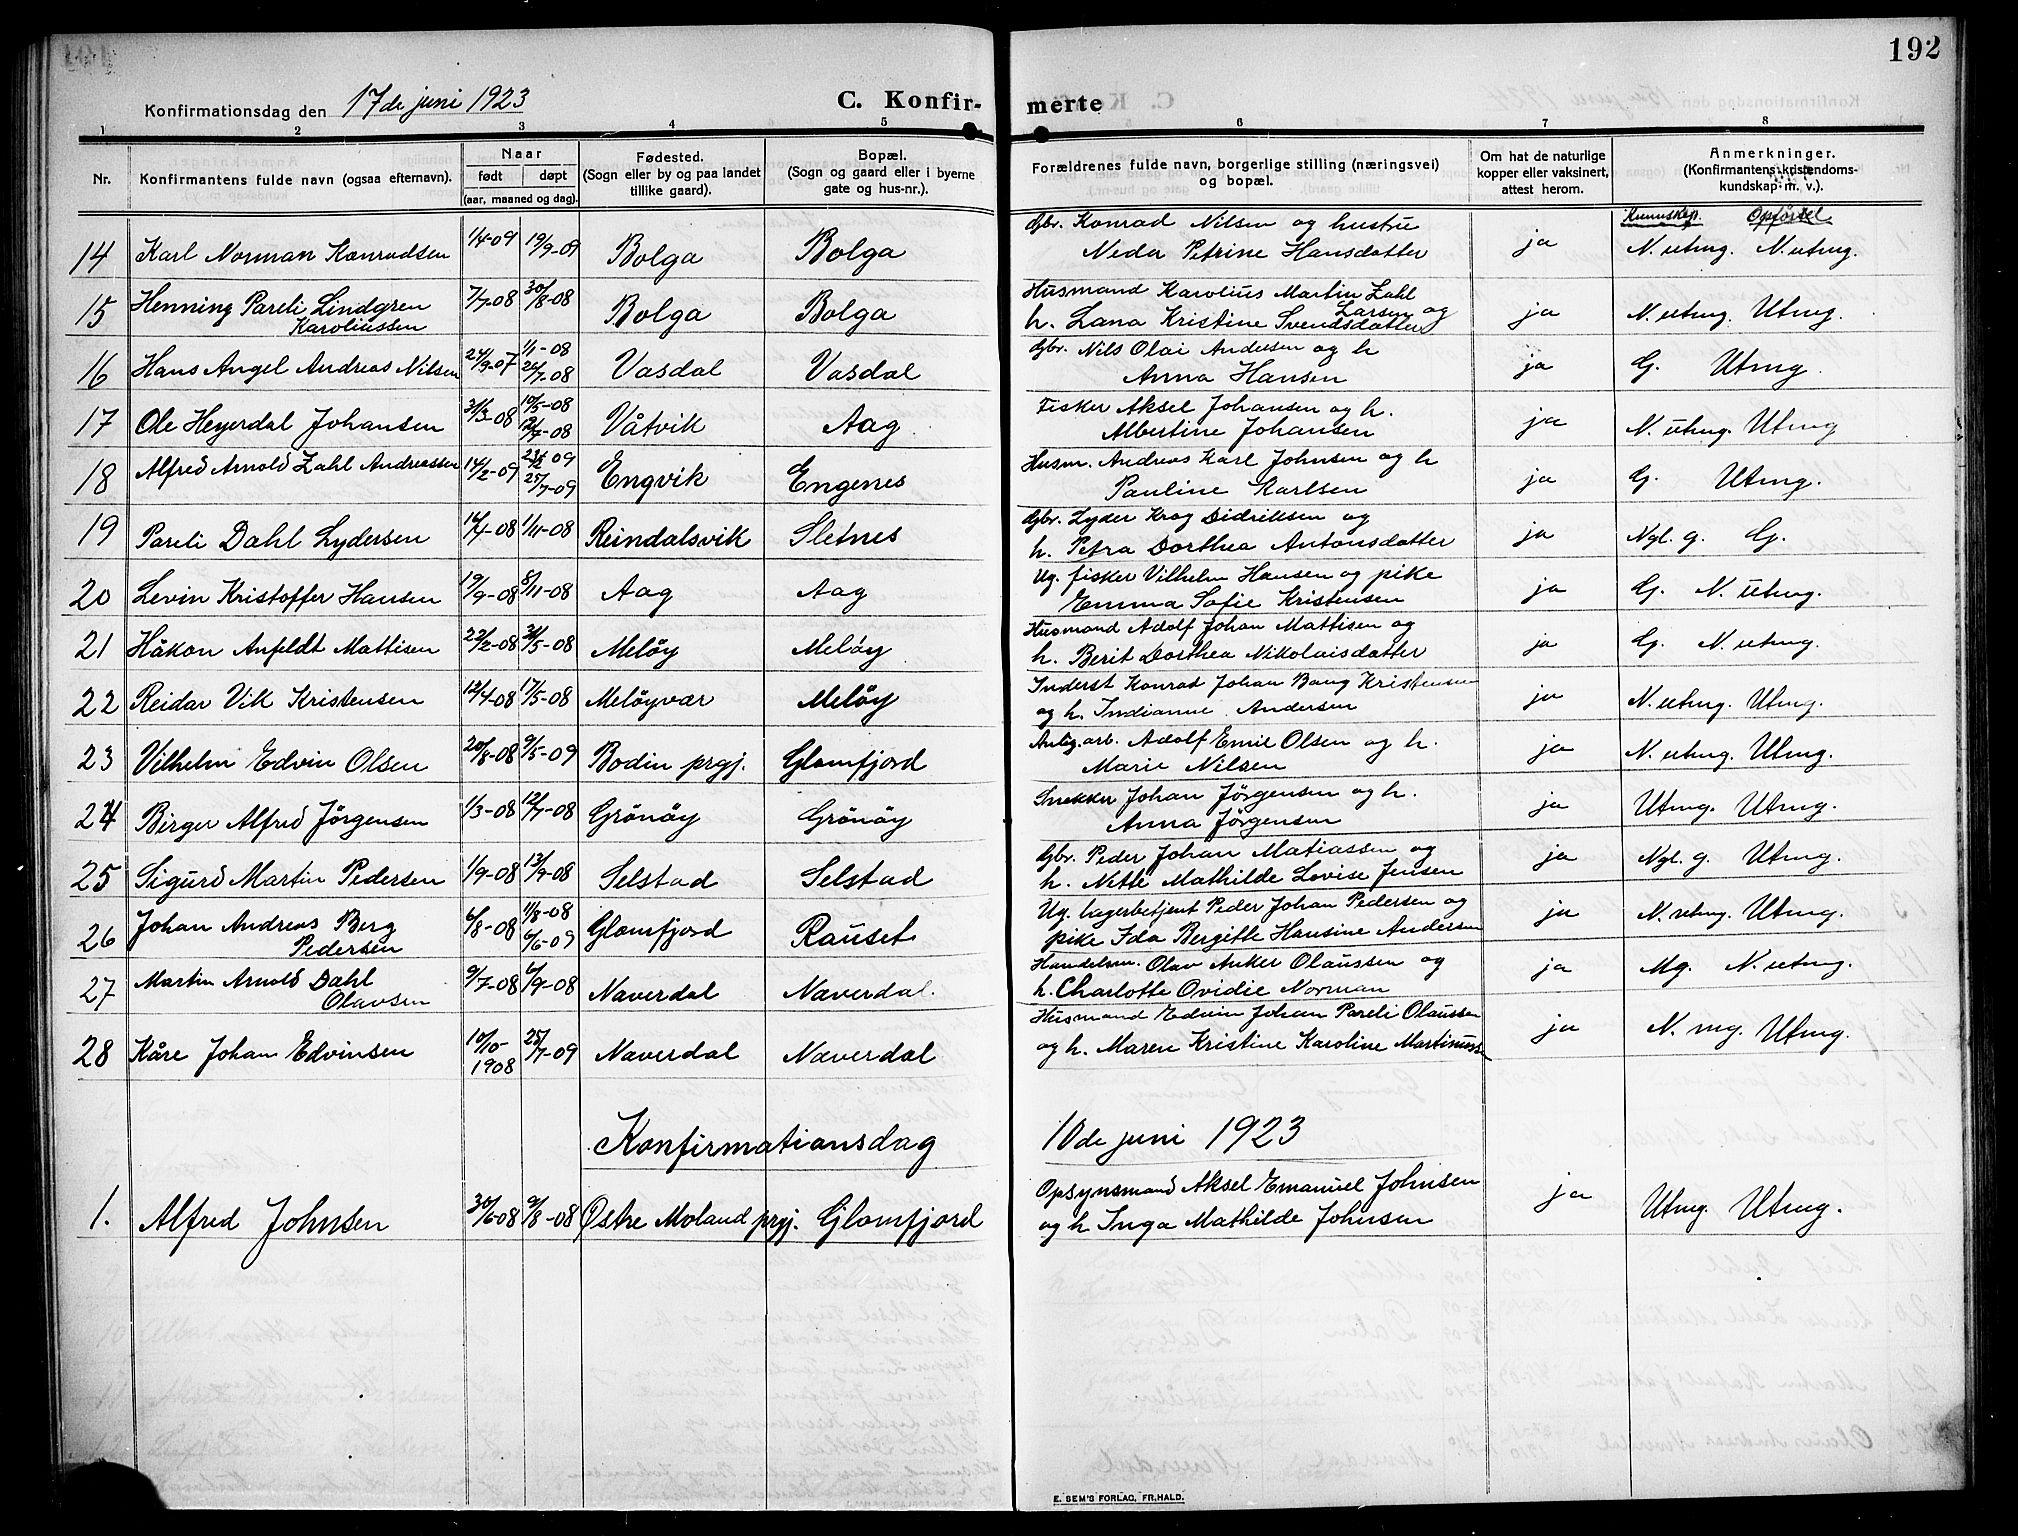 192
Konfirmationsdag den 17de juni 1923
C. Konfirmerte
1 2 3 4 5 6 7 8
Nr. Konfirmantens fulde navn (ogsaa efternavn). Naar født døpt (aar, maaned og dag). Fødested. (Sogn eller by og paa landet tillike gaard). Bopæl. (Sogn og gaard eller i byerne gate og hus-nr.). Forældrenes fulde navn, borgerlige stilling (næringsvei) og bopæl. Om hat de naturlige kopper eller vaksinert, attest herom. Anmerkninger. (Konfirmantens kristendomskundskap m. v.).
Kunnskap. Opførsel
14 Karl Norman Konradsen 1/4-09 19/9-09 Bolga Bolga Gbr. Konrad Nilsen og hustru
Neda Petrine Hansdatter ja N. utmg. N. utmg.
15 Henning Pareli Lindgren
Karoliussen 7/7-08 30/8-08 Bolga Bolga Husmand Karolius Martin Zahl
Larsen og
h. Lana Kristine Svendsdatter ja N. utmg. Utmg.
16 Hans Angel Andreas Nilsen 24/9-07 1/1-08 26/7-08 Vasdal Vasdal Gbr. Nils Olai Andersen og h
Anna Hansen ja G. Utmg.
17 Ole Heyerdal Johansen 31/3-08 10/5-08 12/7-08 Våtvik Aag Fisker Aksel Johansen og h.
Albertine Johansen ja N. utmg. Utmg
18 Alfred Arnold Zahl Andreassen 14/2-09 23/2 09 25/7-09 Engvik Engenes Husm. Andreas Karl Johnsen og h
Pauline Karlsen ja G. Utmg.
19 Pareli Dahl Lydersen 16/4-08 1/11-08 Reindalsvik Sletnes Gbr. Lyder Krog Didriksen og
h. Petra Dorthea Antonsdatter ja Ngl. g. G.
20 Levin Kristoffer Hansen 19/9-08 8/11-08 Aag Aag Ug. fisker Vilhelm Hansen og pike
Emma Sofie Kristensen ja G. N. utmg.
21 Håkon Anfeldt Mattisen 22/2-08 31/5-08 Meløy Meløy Husmand Adolf Johan Mattisen og
h. Berit Dorthea Nikolaisdatter ja G. N. utmg.
22 Reidar Vik Kristensen 12/4-08 17/5-08 Meløyvær Meløy Inderst Konrad Johan Bang Kristensen
og h. Indianne Andersen ja N. utmg. Utmg.
23 Vilhelm Edvin Olsen 20/8-08 9/5-09 Bodin prgj. Glomfjord Anlig. arb. Adolf Emil Olsen og h.
Marie Nilsen ja N. utmg. Utmg.
24 Birger Alfred Jörgensen 1/3-08 12/7-08 Grönöy Grönöy Snekker Johan Jörgensen og h.
Anna Jörgensen ja Utmg. Utmg.
25 Sigurd Martin Pedersen 1/9-08 13/9-08 Selstad Selstad Gbr. Peder Johan Matiassen og
h. Nette Mathilde Lovise Jensen ja Ngl. g. Utmg.
26 Johan Andreas Berg
Pedersen 6/8-08 11/8-08 6/6-09 Glomfjord Rauset Ug. lagerbetjent Peder Johan Pedersen og
pike Ida Bergitte Hansine Andersen ja N. utmg. Utmg.
27 Martin Arnold Dahl
Olavsen 9/7-08 6/9-08 Næverdal Næverdal. Handelsm. Olav Anker Olaussen og
h. Charlotte Ovidie Norman ja Mg. N. utmg.
28 Kåre Johan Edvinsen 10/10-1908 25/7-09 Næverdal Næverdal Husmand Edvin Johan Pareli Olaussen
og h. Maren Kristine Karoline Martinussen ja N. mg. Utmg.
Konfirmationsdag 10de juni 1923
1. Alfred Johnsen 30/6-08 9/8-08 Østre Moland prgj. Glomfjord Opsynsmand Aksel Emanuel Johnsen
og h Inga Mathilde Johnsen ja Utmg. Utmg.
E. SEM'S FORLAG, FR.HALD.